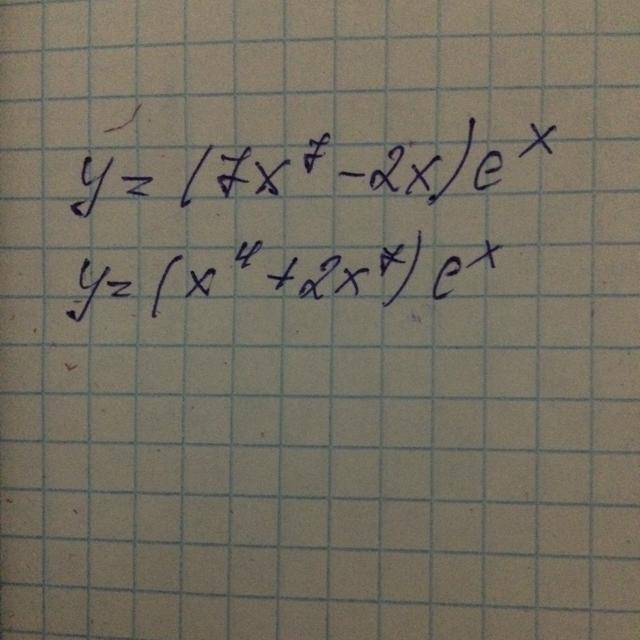 y = (7x⁷ - 2x)eˣ
y = (x⁴ + 2x⁷)eˣ